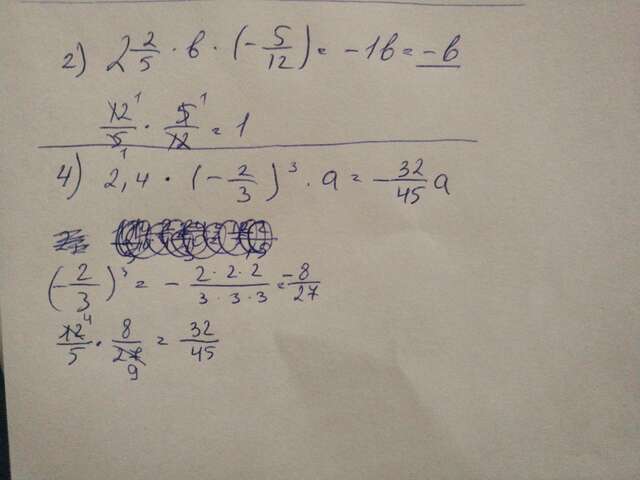 2) 2 2/5 · b · (- 5/12) = -1b = -b
12/5 · 5/12 = 1
4) 2,4 · (- 2/3)³ · a = - 32/45 a
(- 2/3)³ = - 2·2·2/3·3·3 = -8/27
12/5 · 8/27 = 32/45